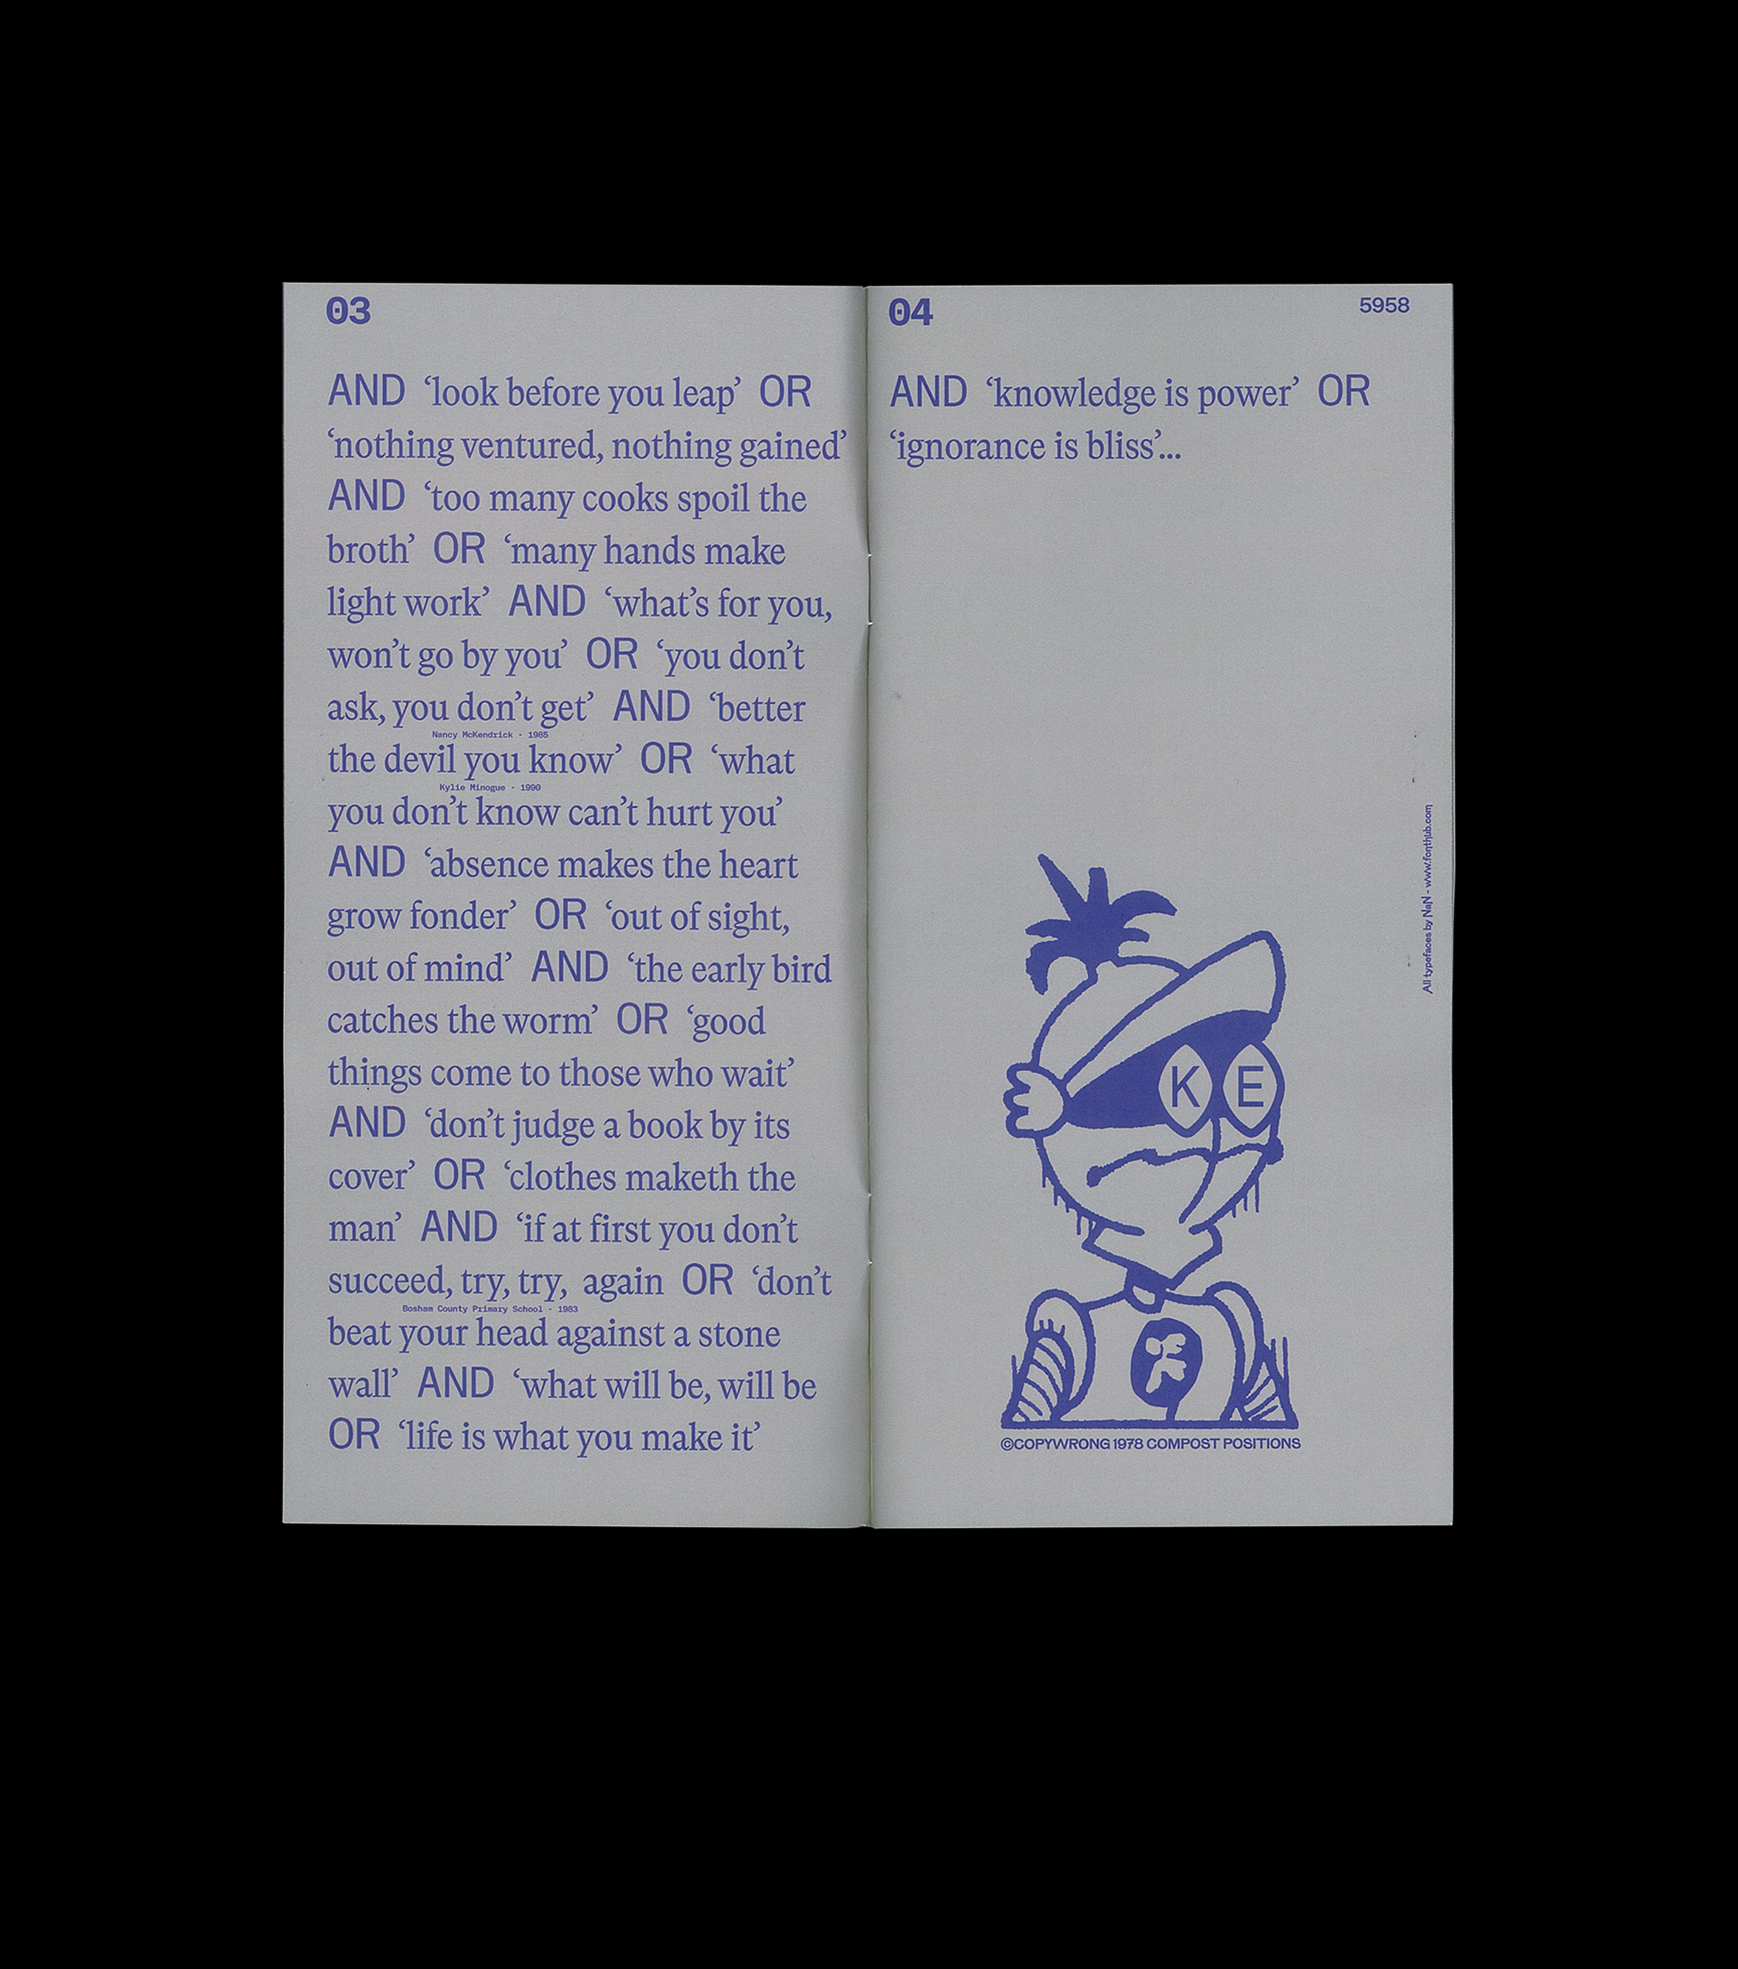 03
AND ‘look before you leap’ OR
‘nothing ventured, nothing gained’
AND ‘too many cooks spoil the
broth’ OR ‘many hands make
light work’ AND ‘what’s for you,
won’t go by you’ OR ‘you don’t
ask, you don’t get’ AND ‘better
Nancy McKendrick - 1985
the devil you know’ OR ‘what
Kylie Minogue - 1990
you don’t know can’t hurt you’
AND ‘absence makes the heart
grow fonder’ OR ‘out of sight,
out of mind’ AND ‘the early bird
catches the worm’ OR ‘good
things come to those who wait’
AND ‘don’t judge a book by its
cover’ OR ‘clothes maketh the
man’ AND ‘if at first you don’t
succeed, try, try, again OR ‘don’t
Bosham County Primary School - 1983
beat your head against a stone
wall’ AND ‘what will be, will be
OR ‘life is what you make it’
04
5958
AND ‘knowledge is power’ OR
‘ignorance is bliss’...
All typefaces by NaN - www.fonthub.com
K E
©COPYWRONG 1978 COMPOST POSITIONS